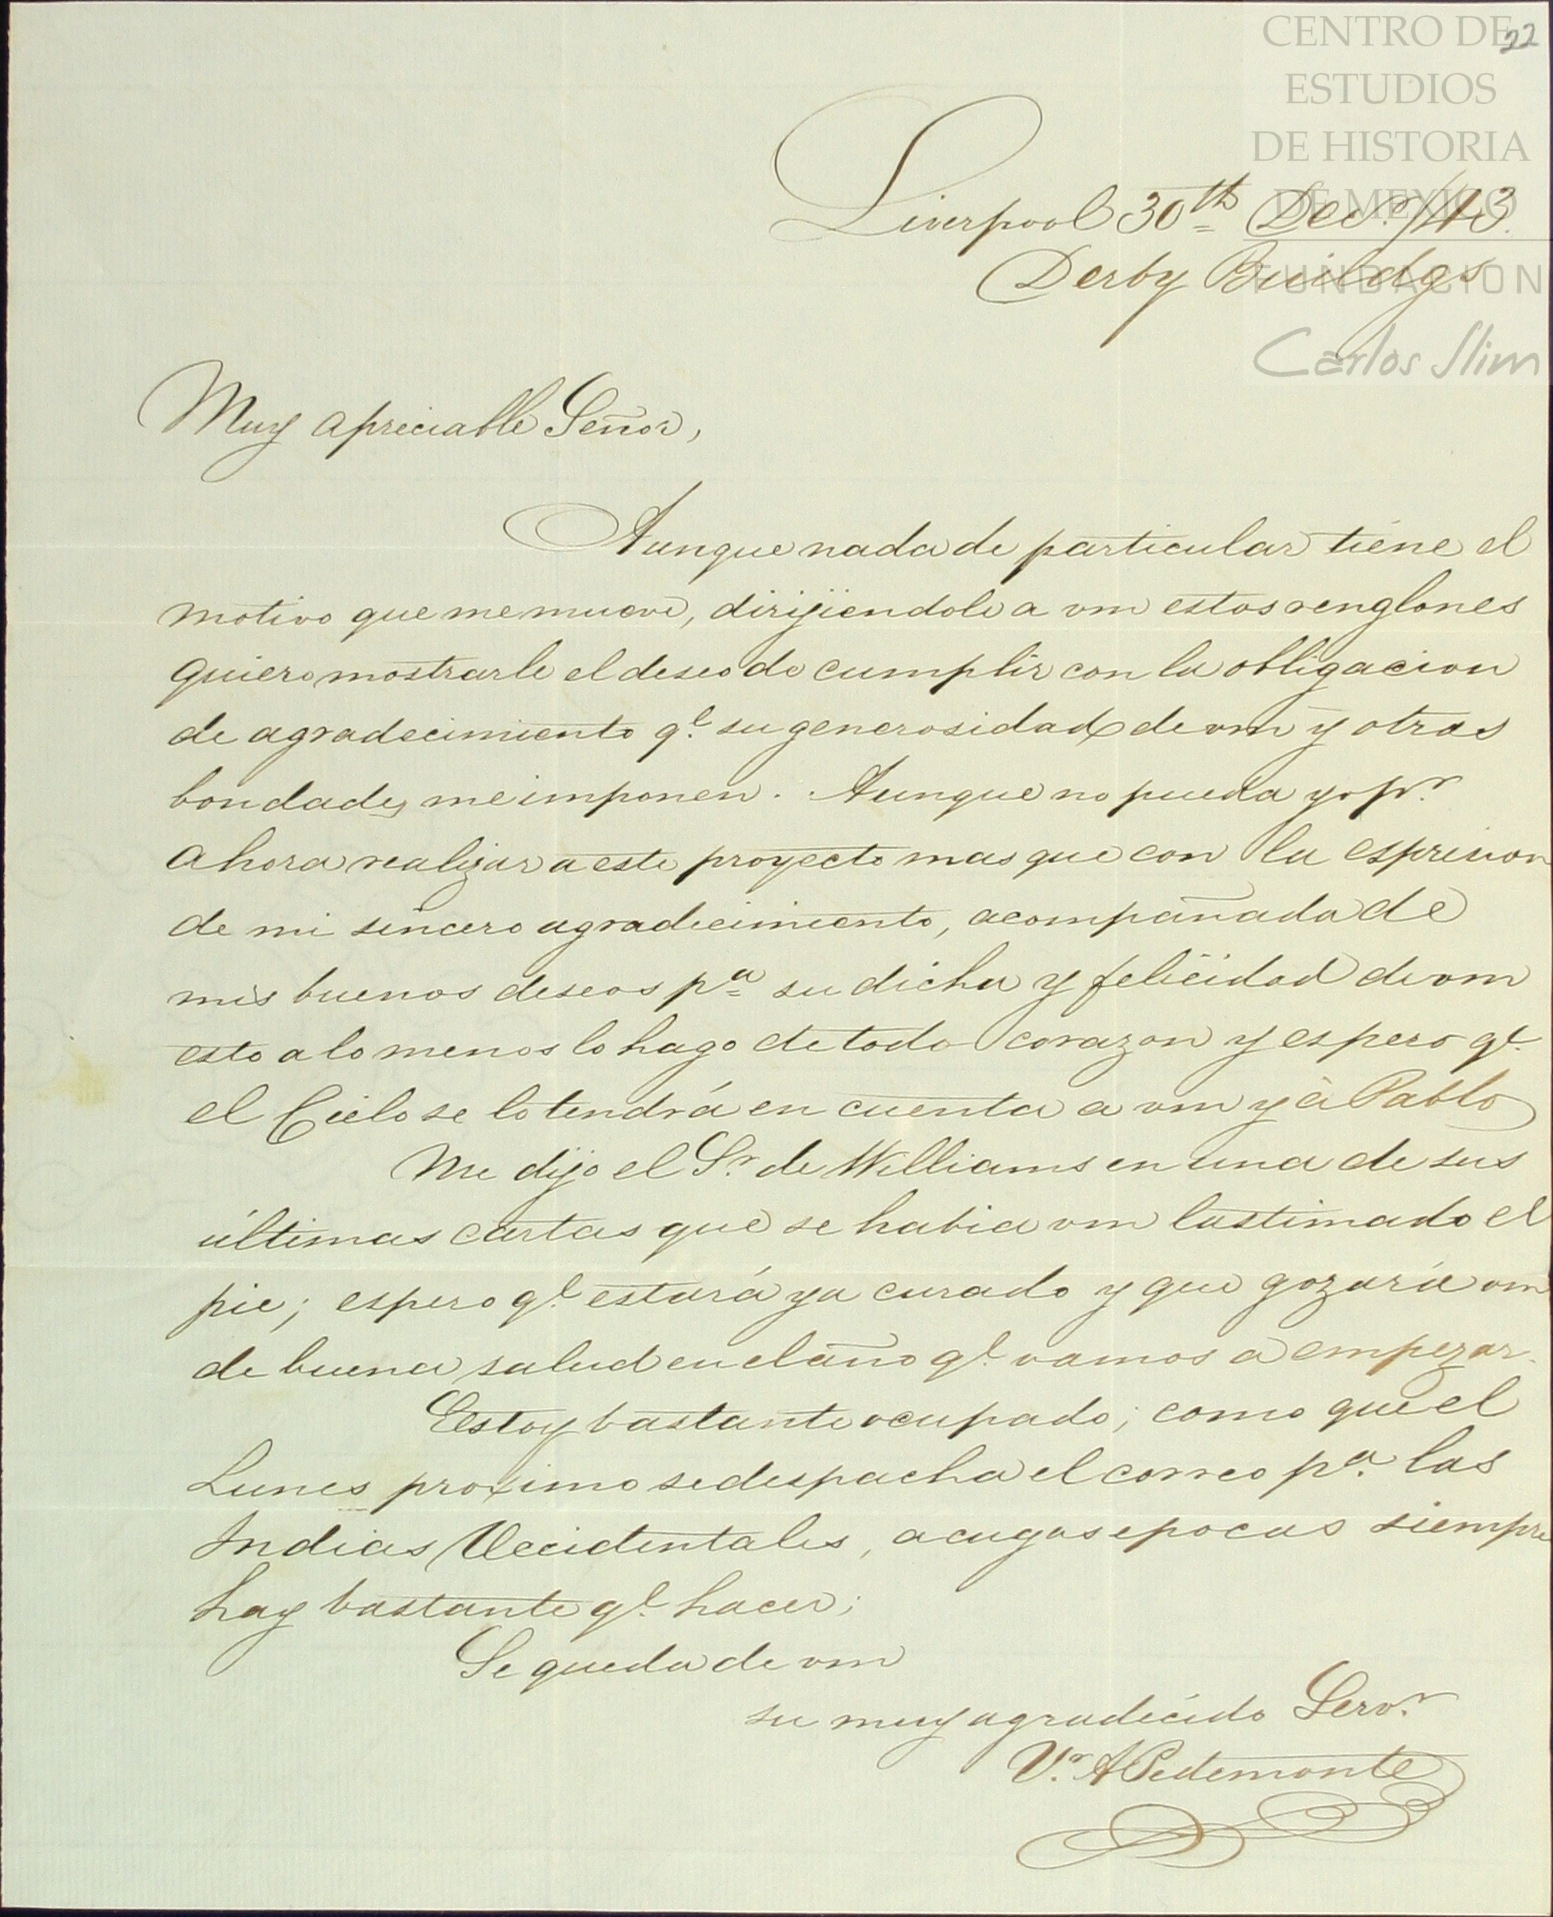 CENTRO DE
ESTUDIOS
DE HISTORIA
DE MEXICO
FUNDACION
Carlos Slim
22
Liverpool 30th Decr. /43.
Derby Buildgs
Muy apreciable Señor,
Aunque nada de particular tiene el
motivo que me mueve, dirijiendole a vm estos renglones
quiero mostrarle el deseo de cumplir con la obligacion
de agradecimiento qe. su generosidad de vm y otras
bondades me imponen. Aunque no pueda yo pr.
ahora realizar a este proyecto mas que con la espresion
de mi sincero agradecimiento, acompañada de
mis buenos deseos pa. su dicha y felicidad de vm
esto a lo menos lo hago de todo corazon y espero qe.
el Cielo se lo tendrá en cuenta a vm y à Pablo
Me dijo el Sr. de Williams en una de sus
últimas cartas que se habia vm lastimado el
pie; espero qe. estará ya curado y que gozará vm
de buena salud en el año qe. vamos a empezar.
Estoy bastante ocupado; como que el
Lunes proximo se despacha el correo pa. las
Indias Occidentales, a cuyas epocas siempre
hay bastante qe. hacer;
Se queda de vm
su muy agradecido Servr.
Vr. A Pedemonte